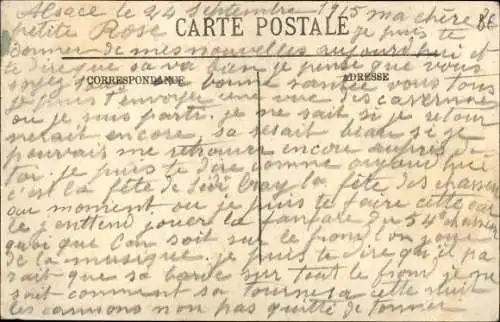 Alsace le 24 Septembre 1915 ma chère
petite Rose
CARTE POSTALE
je puis te
donner de mes nouvelles aujourd'hui et
te dire que sa va bien je pense que vous
CORRESPONDANCE
ADRESSE
soyez tous bonne santée vous tous
je puis t'envoyer une vue des casernes
ou je suis parti. je ne sait si je retour
nerait encore sa serait beau si je
pouvais me retrouver encore auprès de
toi. je puis te dire comme aujourd'hui
c'est la fête de la fête des chasseurs
au moment ou je puis te faire cette
le j'enttend jouer la fanfare du 54e chasseurs
quoi que l'on soit sur le front on joue
de la musique. je puis te dire qu'il pa
sait que sa barde sur tout le front je ne
sait comment sa tournera cette nuit
les camions non pas quitté de tonner